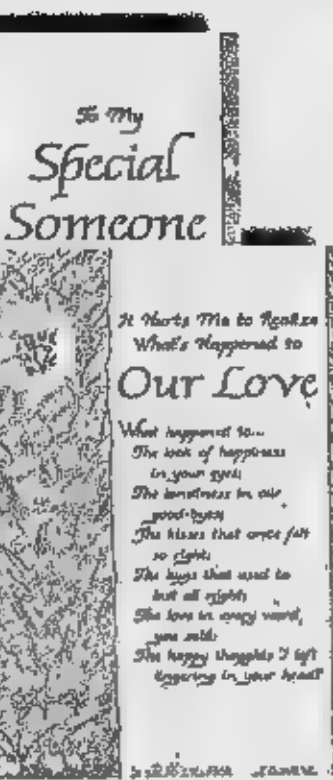 To My
Special
Someone
It Hurts Me to Realize
What's Happened to
Our Love
What happened to...
The look of happiness
in your eyes;
The loneliness in our
good-byes;
The kisses that once felt
so right;
The hugs that used to
last all night;
The love in every word,
you said;
The happy thoughts I left
lingering in your head?